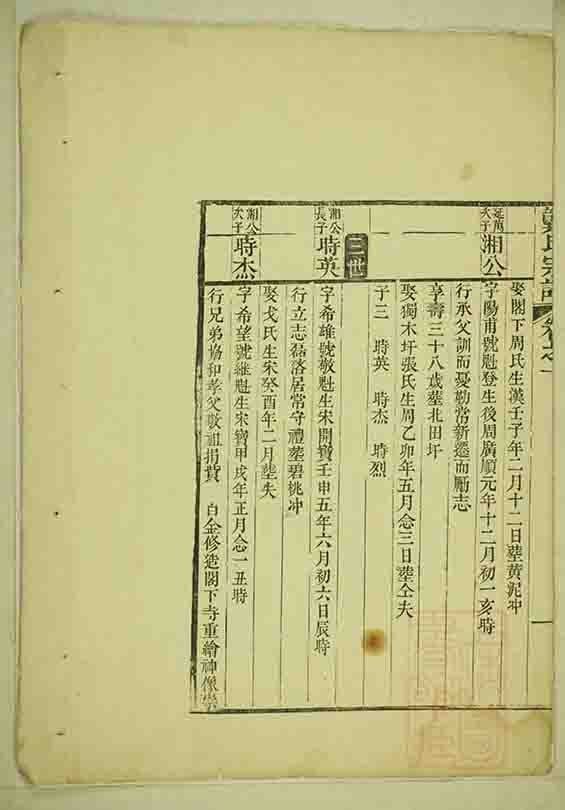 氏宗譜
一
娶閣下周氏生漢壬子年二月十二日塟黄泥冲
延萬
次子
湘公
字陽甫號魁登生後周廣順元年十二月初一亥時
行承父訓而憂勤常新遷而勵志
享壽三十八歲塟北田圩
娶獨木圩張氏生周乙卯年五月念三日塟仝夫
子三 時英 時杰 時烈
三世
湘公
長子
時英
字希雄號敬魁生宋開寶壬申五年六月初六日辰時
行立志磊落居常守禮塟碧桃冲
娶戈氏生宋癸酉年二月塟失
湘公
次子
時杰
字希望號繼魁生宋寶甲戌年正月念一丑時
行兄弟協和孝父敬祖捐貲 白金修造閣下寺重繪神像崇